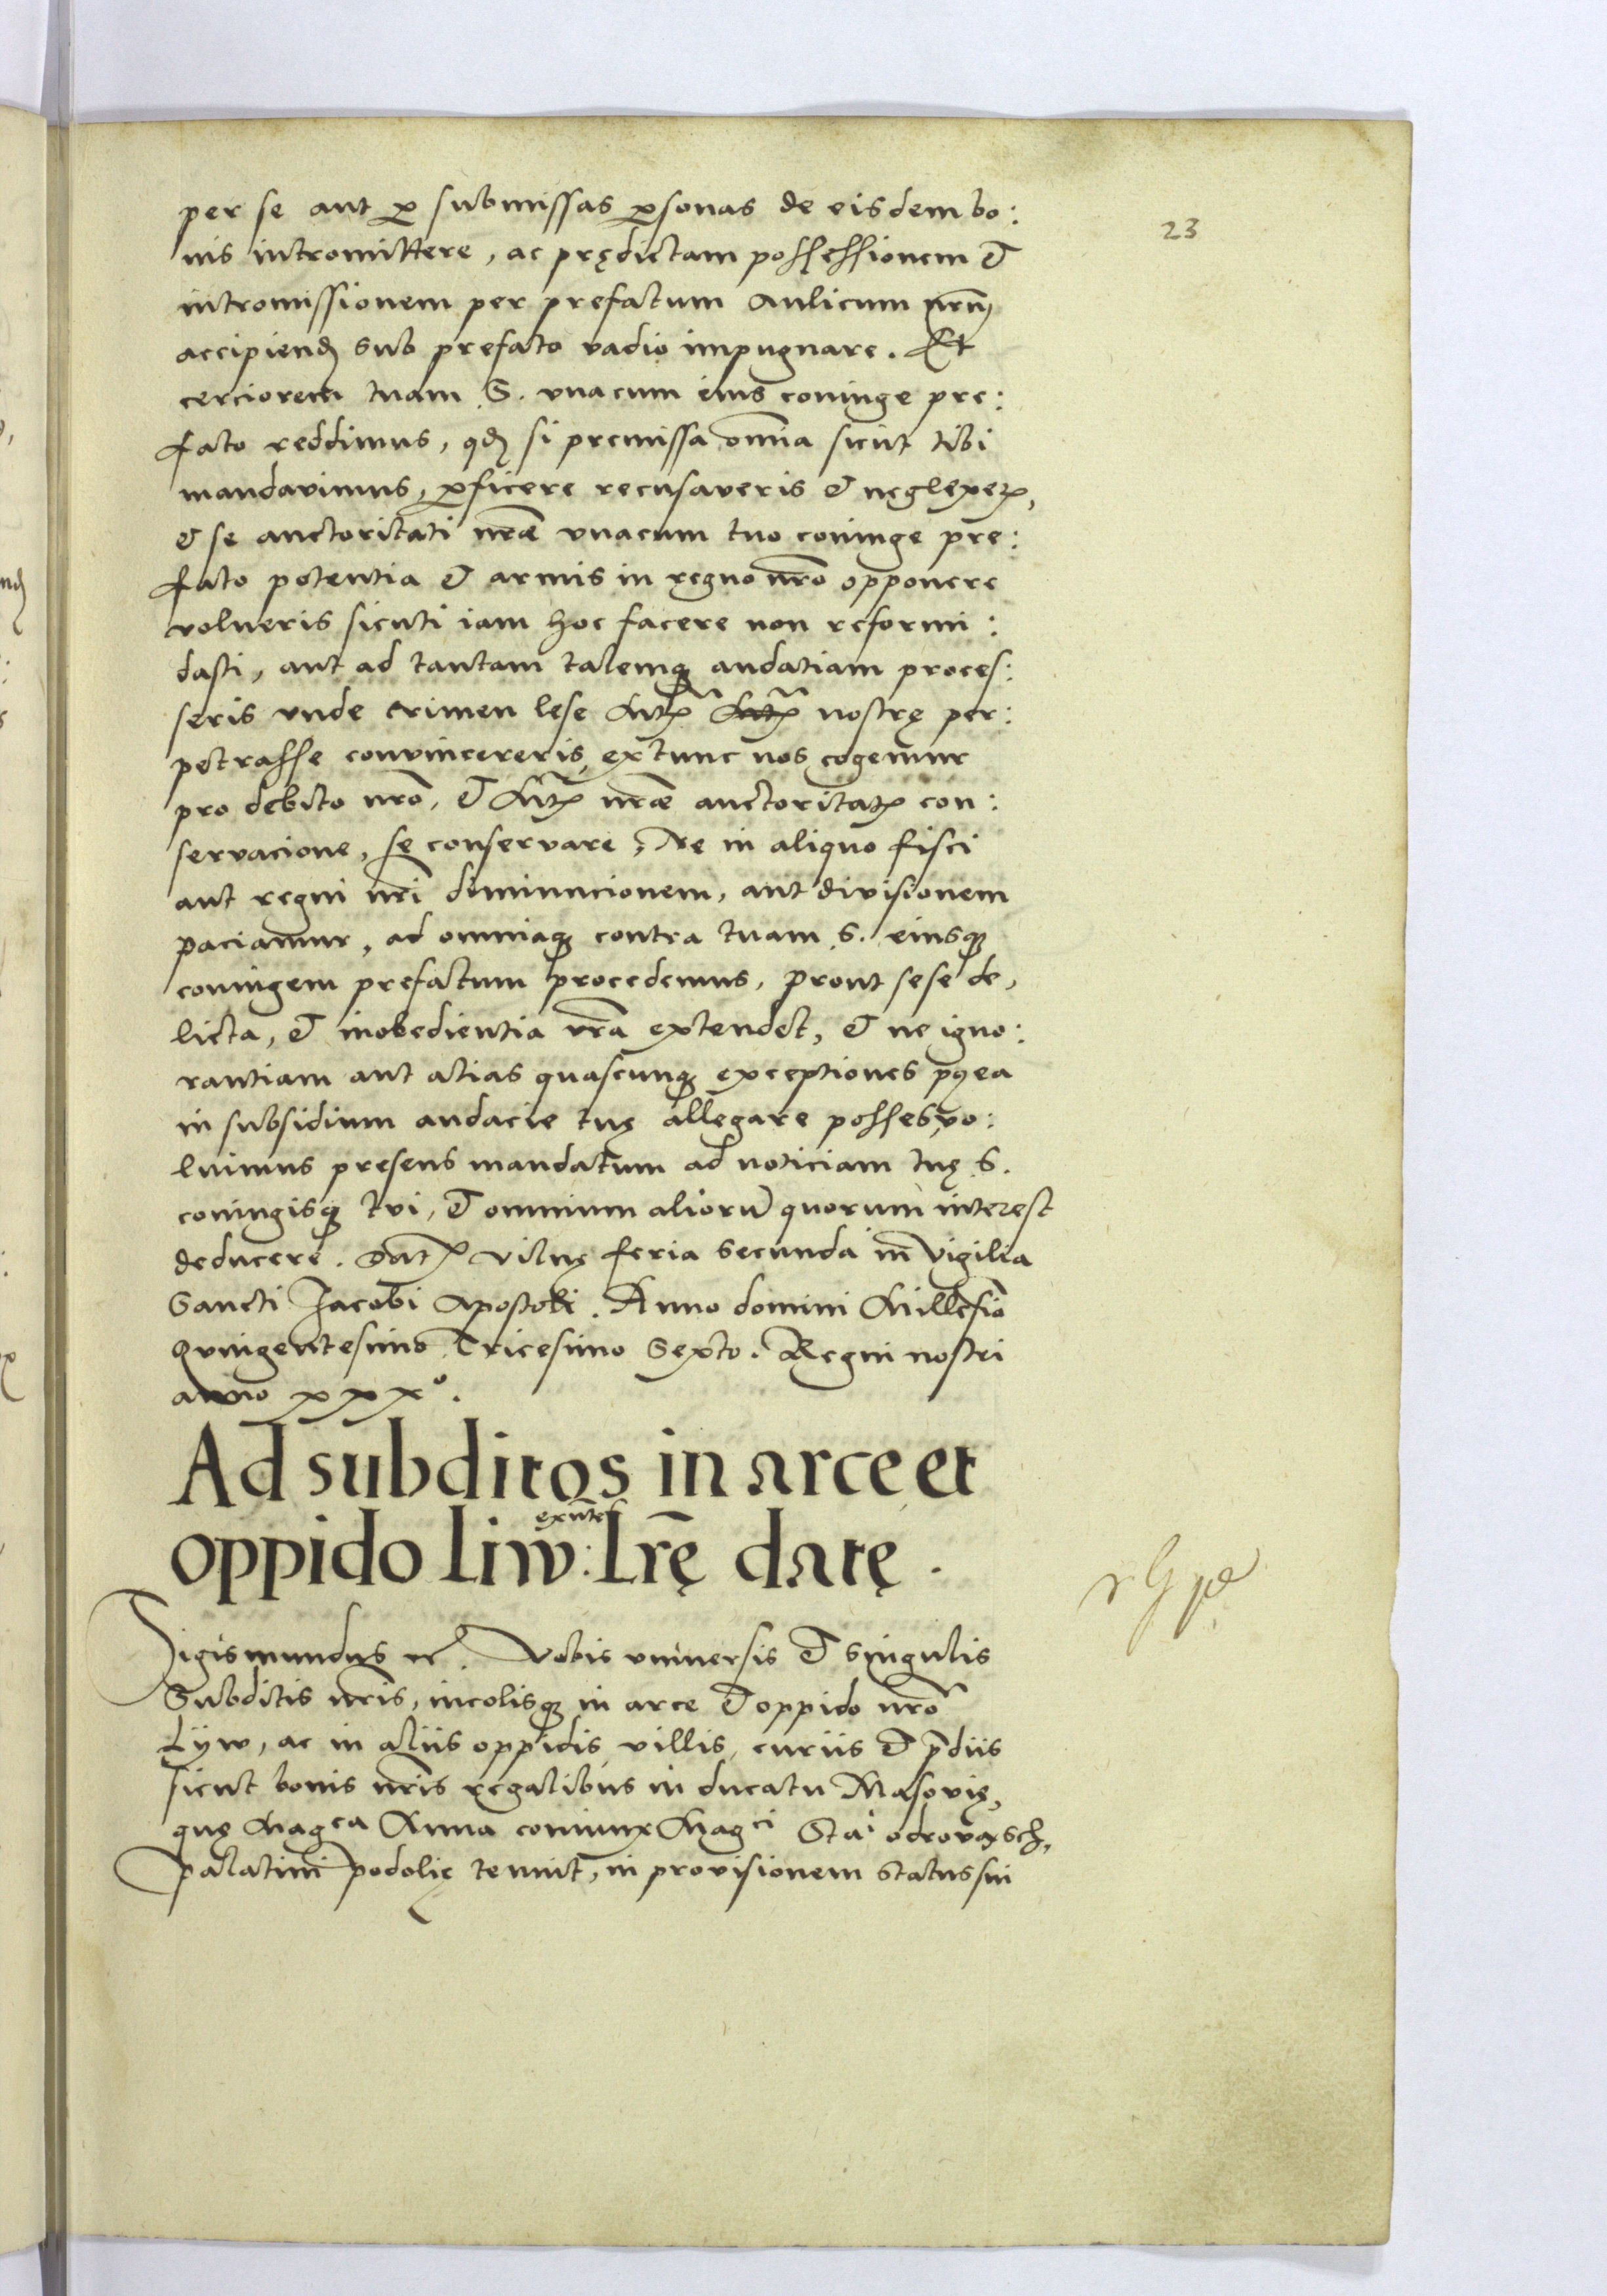 23
per se aut ꝑ submissas ꝑsonas de eisdem bo:
nis intromittere, ac prędictam possessionem &
intromissionem per prefatum Aulicum nr̃m
accipiend sub prefato vadio impugnare. Et
cerciorem tuam S. vnacum eius coniuge pre:
fato reddimus, qd si premissa omnia sicut tibi
mandavimus, ꝑficere recusaveris & neglexeꝝ,
& se auctoritati nr̃æ vnacum tuo coniuge pre:
fato potentia & armis in regno nr̃o opponere
volueris sicuti iam hoc facere non reformi:
dasti, aut ad tantam talemqꝫ audatiam proces:
seris vnde crimen lese Mtꝭ Mtꝭ nostrę per:
petrasse convincereris, ex tunc nos cogemur
pro debito nr̃o, & Mtꝭ nr̃æ auctoritatꝭ con:
servacione, se conservare, Ne in aliquo fisci
aut regni nr̃i diminucionem, aut divisionem
paciamur, ad omniaqꝫ contra tuam S. eiusqꝫ
coniugem prefatum procedemus, prout sese de,
licta, & inobedientia vr̃a extendet, & ne igno:
rantiam aut alias quascunqꝫ exceptiones ꝓea
in subsidium audacie tuę allegare posses, vo:
luimus presens mandatum ad noticiam tuę S.
coniugisqꝫ tui, & omnium aliorũ quorum interest
deducere. Datꝭ Vilnę feria secunda in Vigilia
Sancti Jacobi Apostoli. Anno domini Millesio
Quingentesimo Tricesimo Sexto. Regni nostri
anno xxxº.
Ad subditos in arce et
oppido Liw: exñtes Lr̃ę datę.
Sigismundus etc. Vobis vniuersis & singulis
Subditis nr̃is, incolisqꝫ in arce & oppido nr̃o
Lyw, ac in aliis oppidis villis, curiis & p̃diis
sicut bonis nr̃is regalibus in ducatu Masovię,
quę Magca Anna coniunx Magci Stai odrovasch,
Palatini Podolię tenuit, in provisionem status sui